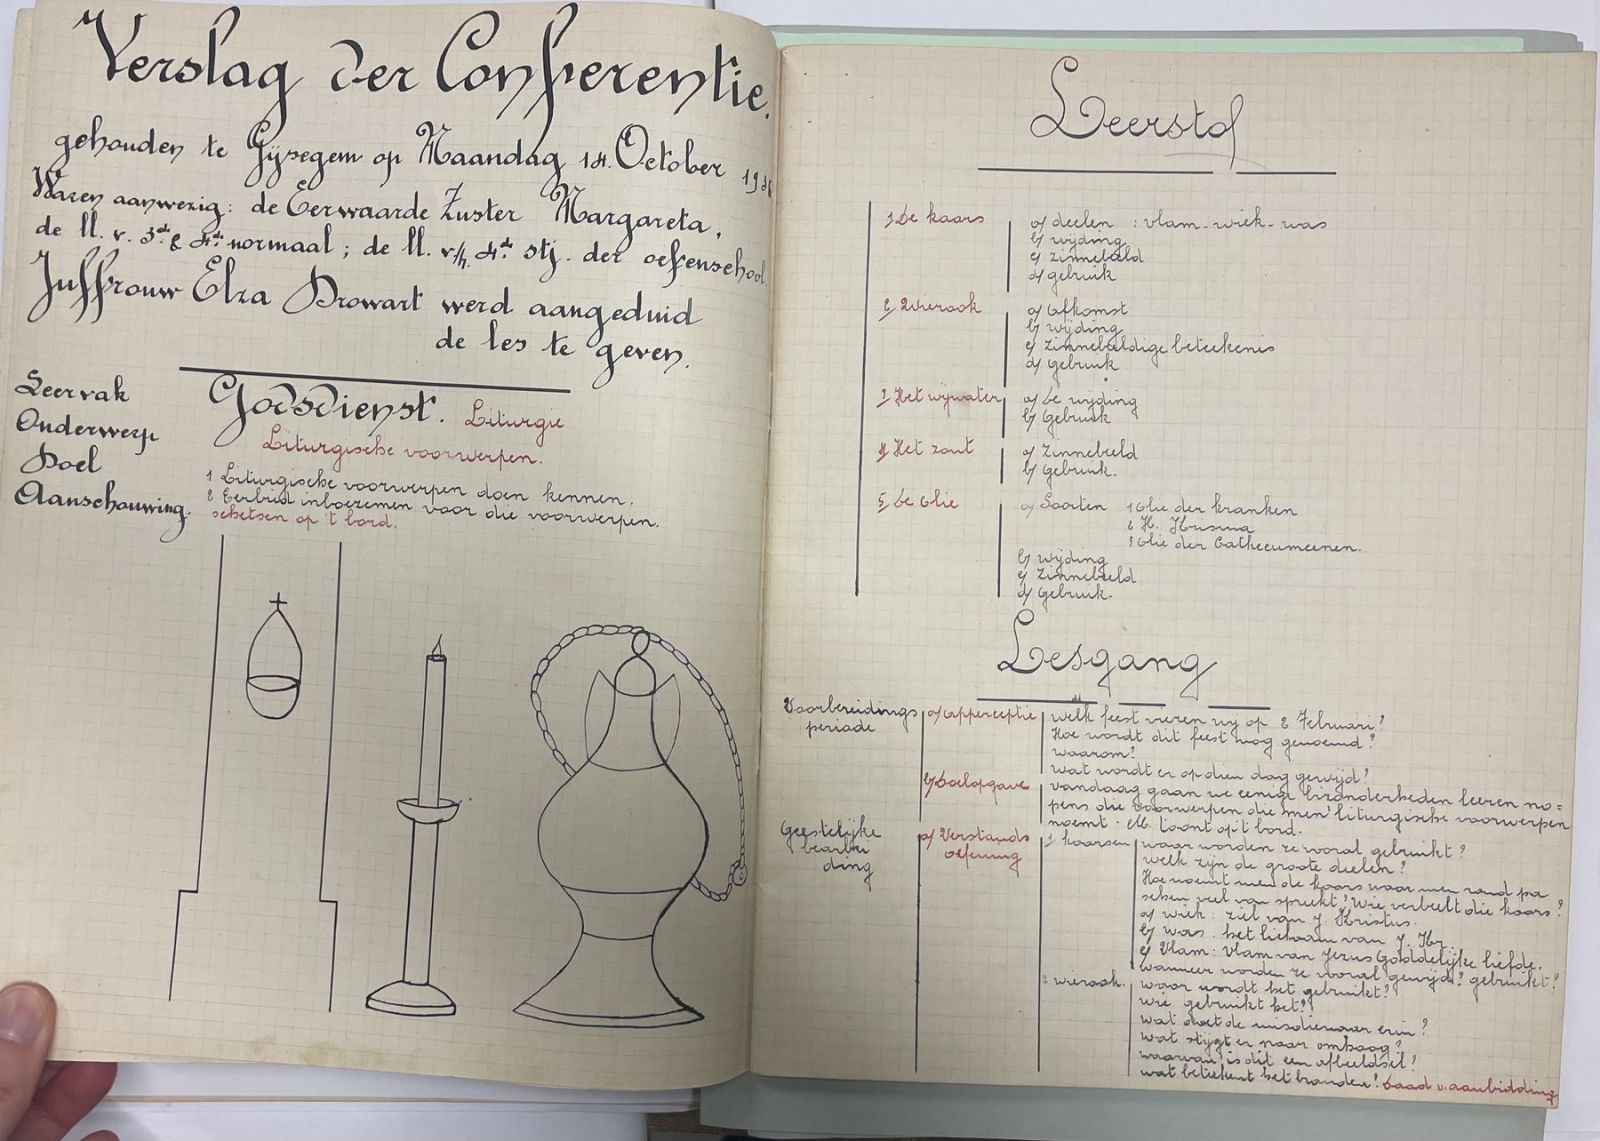 Verslag der Conferentie.
gehouden te Gijzegem op Maandag 14. October
Waren aanwezig: de Eerwaarde Zuster Margareta,
de ll. v. 3de & 4de normaal; de ll. v/h. 4de stj. der oefenschool
Juffrouw Elza Drowart werd aangeduid
de les te geven.
Leervak Godsdienst. Liturgie
Onderwerp Liturgische voorwerpen.
Doel 1 Liturgische voorwerpen doen kennen.
2 Eerbied inboezemen voor die voorwerpen.
Aanschouwing. schetsen op 't bord.
Leerstof
1/ De kaars a/ deelen : vlam - wiek - was
b/ wijding
c/ zinnebeeld
d/ gebruik
2/ Wierook a/ Afkomst
b/ wijding
c/ zinnebeeldige beteekenis
d/ gebruik
3/ Het wijwater a/ De wijding
b/ Gebruik
4/ Het zout a/ Zinnebeeld
b/ Gebruik.
5/ De Olie a/ Soorten 1 Olie der kranken
2 H. Krisma
3 Olie der Catheeumeenen.
b/ wijding
c/ Zinnebeeld
d/ Gebruik.
Lesgang
Voorbereidings periode a/ Apperceptie welk feest vieren wij op 2 Februari?
Hoe wordt dit feest nog genoemd?
waarom?
wat wordt er op dien dag gewijd?
b/ Doelopgave vandaag gaan we eenige bizonderheden leeren no=
pens die voorwerpen die men liturgische voorwerpen
noemt. M. toont op 't bord.
Geestelijke bearbei ding a/ Verstands oefening 1 kaarsen waar worden ze vooral gebruikt?
welk zijn de groote deelen?
Hoe noemt men de kaars waar men rond pa
schen veel van spreekt? Wie verbeelt die kaars?
a/ wiek: ziel van J. Kristus.
b/ was: het lichaam van J. Kr.
c/ Vlam: vlam van Jezus Goddelijke liefde.
wanneer worden ze vooral gewijd? gebruikt?
2 wierook. waar wordt het gebruikt?
wie gebruikt het?
wat doet de misdienaar erin?
wat stijgt er naar omhoog?
waarvan is dit een afbeeldsel?
wat beteekent het branden? Daad v. aanbidding